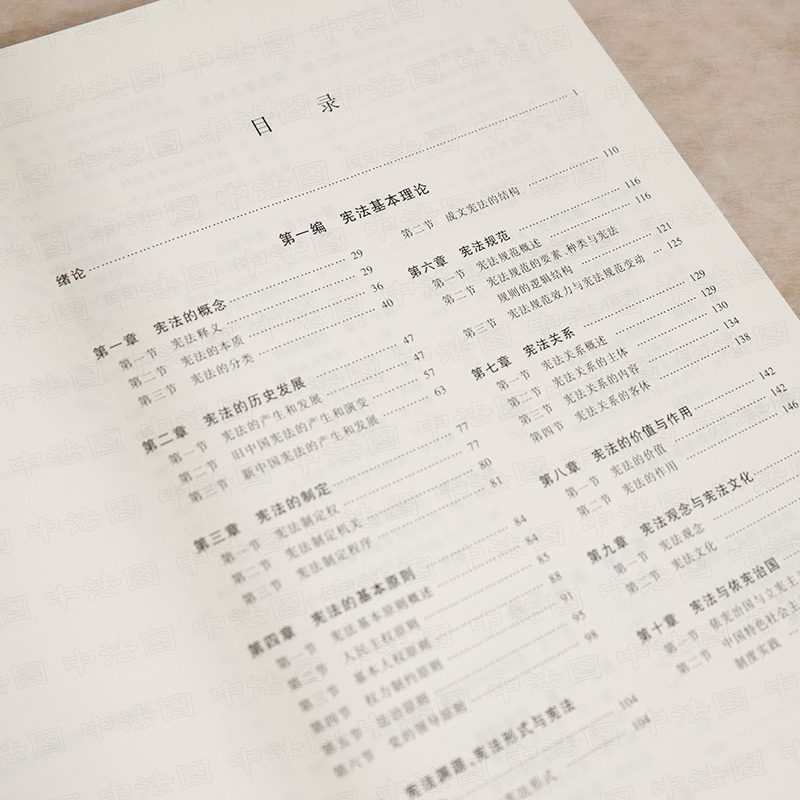 目 录
绪论 1
第一编 宪法基本理论
第一章 宪法的概念 29
第一节 宪法释义 29
第二节 宪法的本质 36
第三节 宪法的分类 40
第二章 宪法的历史发展 47
第一节 宪法的产生和发展 47
第二节 旧中国宪法的产生和演变 57
第三节 新中国宪法的产生和发展 63
第三章 宪法的制定 77
第一节 宪法制定权 77
第二节 宪法制定机关 80
第三节 宪法制定程序 81
第四章 宪法的基本原则 84
第一节 宪法基本原则概述 84
第二节 人民主权原则 85
第三节 基本人权原则 88
第四节 权力制约原则 91
第五节 法治原则 95
第六节 党的领导原则 98
宪法渊源、宪法形式与宪法
104
宪法形式 104
第二节 成文宪法的结构 110
第六章 宪法规范 116
第一节 宪法规范概述 116
第二节 宪法规范的要素、种类与宪法
规则的逻辑结构 121
第三节 宪法规范效力与宪法规范变动 125
第七章 宪法关系 129
第一节 宪法关系概述 129
第二节 宪法关系的主体 130
第三节 宪法关系的内容 134
第四节 宪法关系的客体 138
第八章 宪法的价值与作用 142
第一节 宪法的价值 142
第二节 宪法的作用 146
第九章 宪法观念与宪法文化
第一节 宪法观念
第二节 宪法文化
第十章 宪法与依宪治国
第一节 依宪治国与立宪主
第二节 中国特色社会主
制度实践
中法图